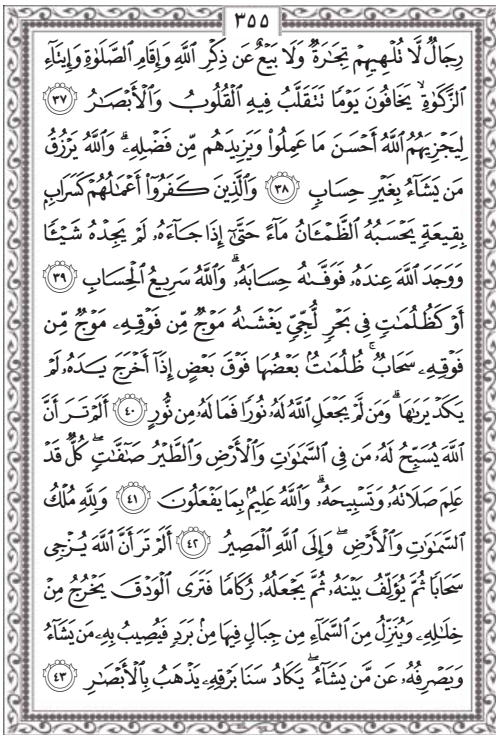 ٣٥٥
رِجَالٌ لَّا تُلْهِيهِمْ تِجَٰرَةٌ وَلَا بَيْعٌ عَن ذِكْرِ ٱللَّهِ وَإِقَامِ ٱلصَّلَوٰةِ وَإِيتَآءِ
ٱلزَّكَوٰةِ ۙ يَخَافُونَ يَوْمًا تَتَقَلَّبُ فِيهِ ٱلْقُلُوبُ وَٱلْأَبْصَٰرُ ٣٧
لِيَجْزِيَهُمُ ٱللَّهُ أَحْسَنَ مَا عَمِلُوا۟ وَيَزِيدَهُم مِّن فَضْلِهِۦ ۗ وَٱللَّهُ يَرْزُقُ
مَن يَشَآءُ بِغَيْرِ حِسَابٍ ٣٨ وَٱلَّذِينَ كَفَرُوٓا۟ أَعْمَٰلُهُمْ كَسَرَابٍۭ
بِقِيعَةٍ يَحْسَبُهُ ٱلظَّمْـَٔانُ مَآءً حَتَّىٰٓ إِذَا جَآءَهُۥ لَمْ يَجِدْهُ شَيْـًٔا
وَوَجَدَ ٱللَّهَ عِندَهُۥ فَوَفَّىٰهُ حِسَابَهُۥ ۗ وَٱللَّهُ سَرِيعُ ٱلْحِسَابِ ٣٩
أَوْ كَظُلُمَٰتٍ فِى بَحْرٍ لُّجِّىٍّ يَغْشَىٰهُ مَوْجٌ مِّن فَوْقِهِۦ مَوْجٌ مِّن
فَوْقِهِۦ سَحَابٌ ۚ ظُلُمَٰتٌۢ بَعْضُهَا فَوْقَ بَعْضٍ إِذَآ أَخْرَجَ يَدَهُۥ لَمْ
يَكَدْ يَرَىٰهَا ۗ وَمَن لَّمْ يَجْعَلِ ٱللَّهُ لَهُۥ نُورًا فَمَا لَهُۥ مِن نُّورٍ ٤٠ أَلَمْ تَرَ أَنَّ
ٱللَّهَ يُسَبِّحُ لَهُۥ مَن فِى ٱلسَّمَٰوَٰتِ وَٱلْأَرْضِ وَٱلطَّيْرُ صَٰٓفَّٰتٍ ۖ كُلٌّ قَدْ
عَلِمَ صَلَاتَهُۥ وَتَسْبِيحَهُۥ ۗ وَٱللَّهُ عَلِيمٌۢ بِمَا يَفْعَلُونَ ٤١ وَلِلَّهِ مُلْكُ
ٱلسَّمَٰوَٰتِ وَٱلْأَرْضِ ۖ وَإِلَى ٱللَّهِ ٱلْمَصِيرُ ٤٢ أَلَمْ تَرَ أَنَّ ٱللَّهَ يُزْجِى
سَحَابًا ثُمَّ يُؤَلِّفُ بَيْنَهُۥ ثُمَّ يَجْعَلُهُۥ رُكَامًا فَتَرَى ٱلْوَدْقَ يَخْرُجُ مِنْ
خِلَٰلِهِۦ وَيُنَزِّلُ مِنَ ٱلسَّمَآءِ مِن جِبَالٍ فِيهَا مِنۢ بَرَدٍ فَيُصِيبُ بِهِۦ مَن يَشَآءُ
وَيَصْرِفُهُۥ عَن مَّن يَشَآءُ ۖ يَكَادُ سَنَا بَرْقِهِۦ يَذْهَبُ بِٱلْأَبْصَٰرِ ٤٣